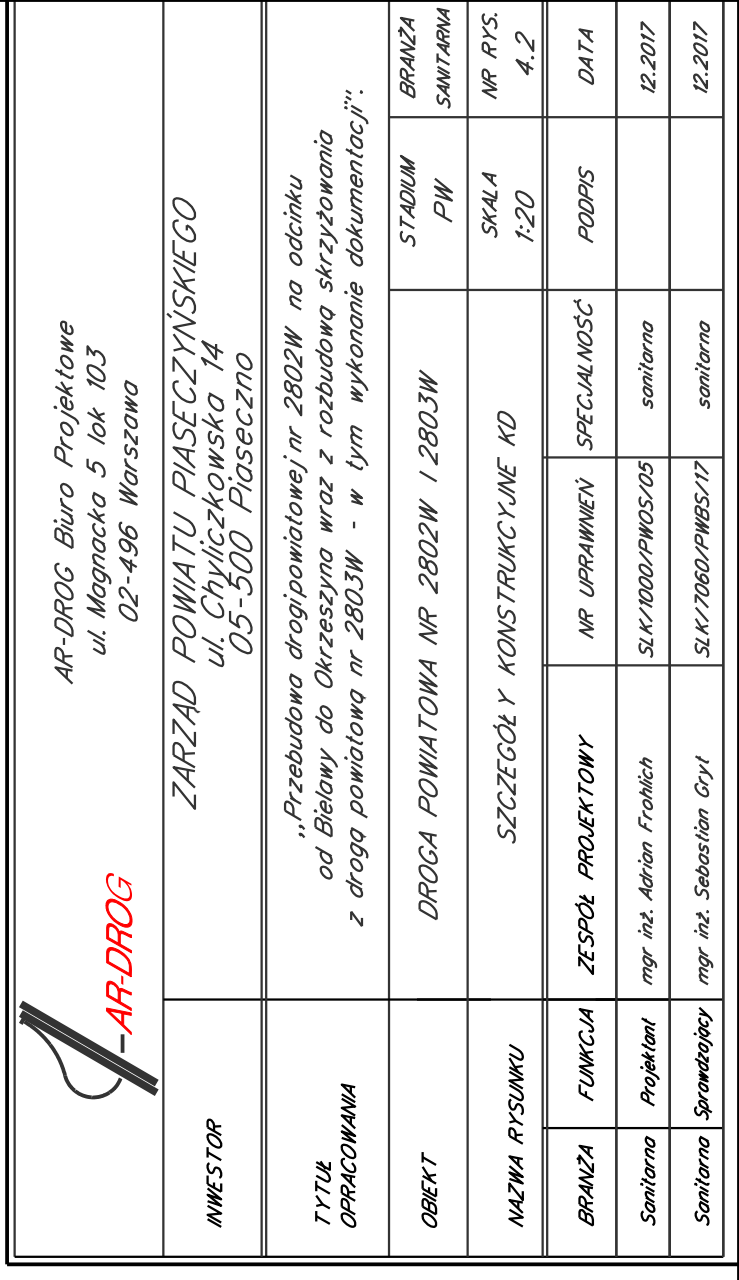 AR-DROG
AR-DROG Biuro Projektowe
ul. Magnacka 5 lok 103
02-496 Warszawa
INWESTOR
ZARZĄD POWIATU PIASECZYŃSKIEGO
ul. Chyliczkowska 14
05-500 Piaseczno
TYTUŁ
OPRACOWANIA
,,Przebudowa drogi powiatowej nr 2802W na odcinku
od Bielawy do Okrzeszyna wraz z rozbudową skrzyżowania
z drogą powiatową nr 2803W - w tym wykonanie dokumentacji".
OBIEKT
DROGA POWIATOWA NR 2802W I 2803W
STADIUM
PW
BRANŻA
SANITARNA
NAZWA RYSUNKU
SZCZEGÓŁY KONSTRUKCYJNE KD
SKALA
1:20
NR RYS.
4.2
BRANŻA FUNKCJA ZESPÓŁ PROJEKTOWY NR UPRAWNIEŃ SPECJALNOŚĆ PODPIS DATA
Sanitarna Projektant mgr inż. Adrian Frohlich SLK/1000/PWOS/05 sanitarna 12.2017
Sanitarna Sprawdzający mgr inż. Sebastian Grył SLK/7060/PWBS/17 sanitarna 12.2017